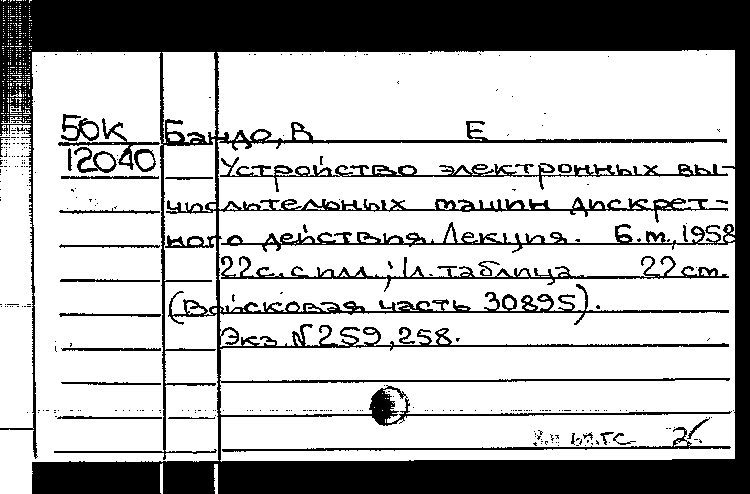 50К Бандо, В Е
12040 Устройство электронных вы-
числительных машин дискрет-
ного действия. Лекция. Б.м., 1958
22с. с илл.; 1л. таблица 22 см.
(Войсковая часть 30895).
Экз. №259, 258.